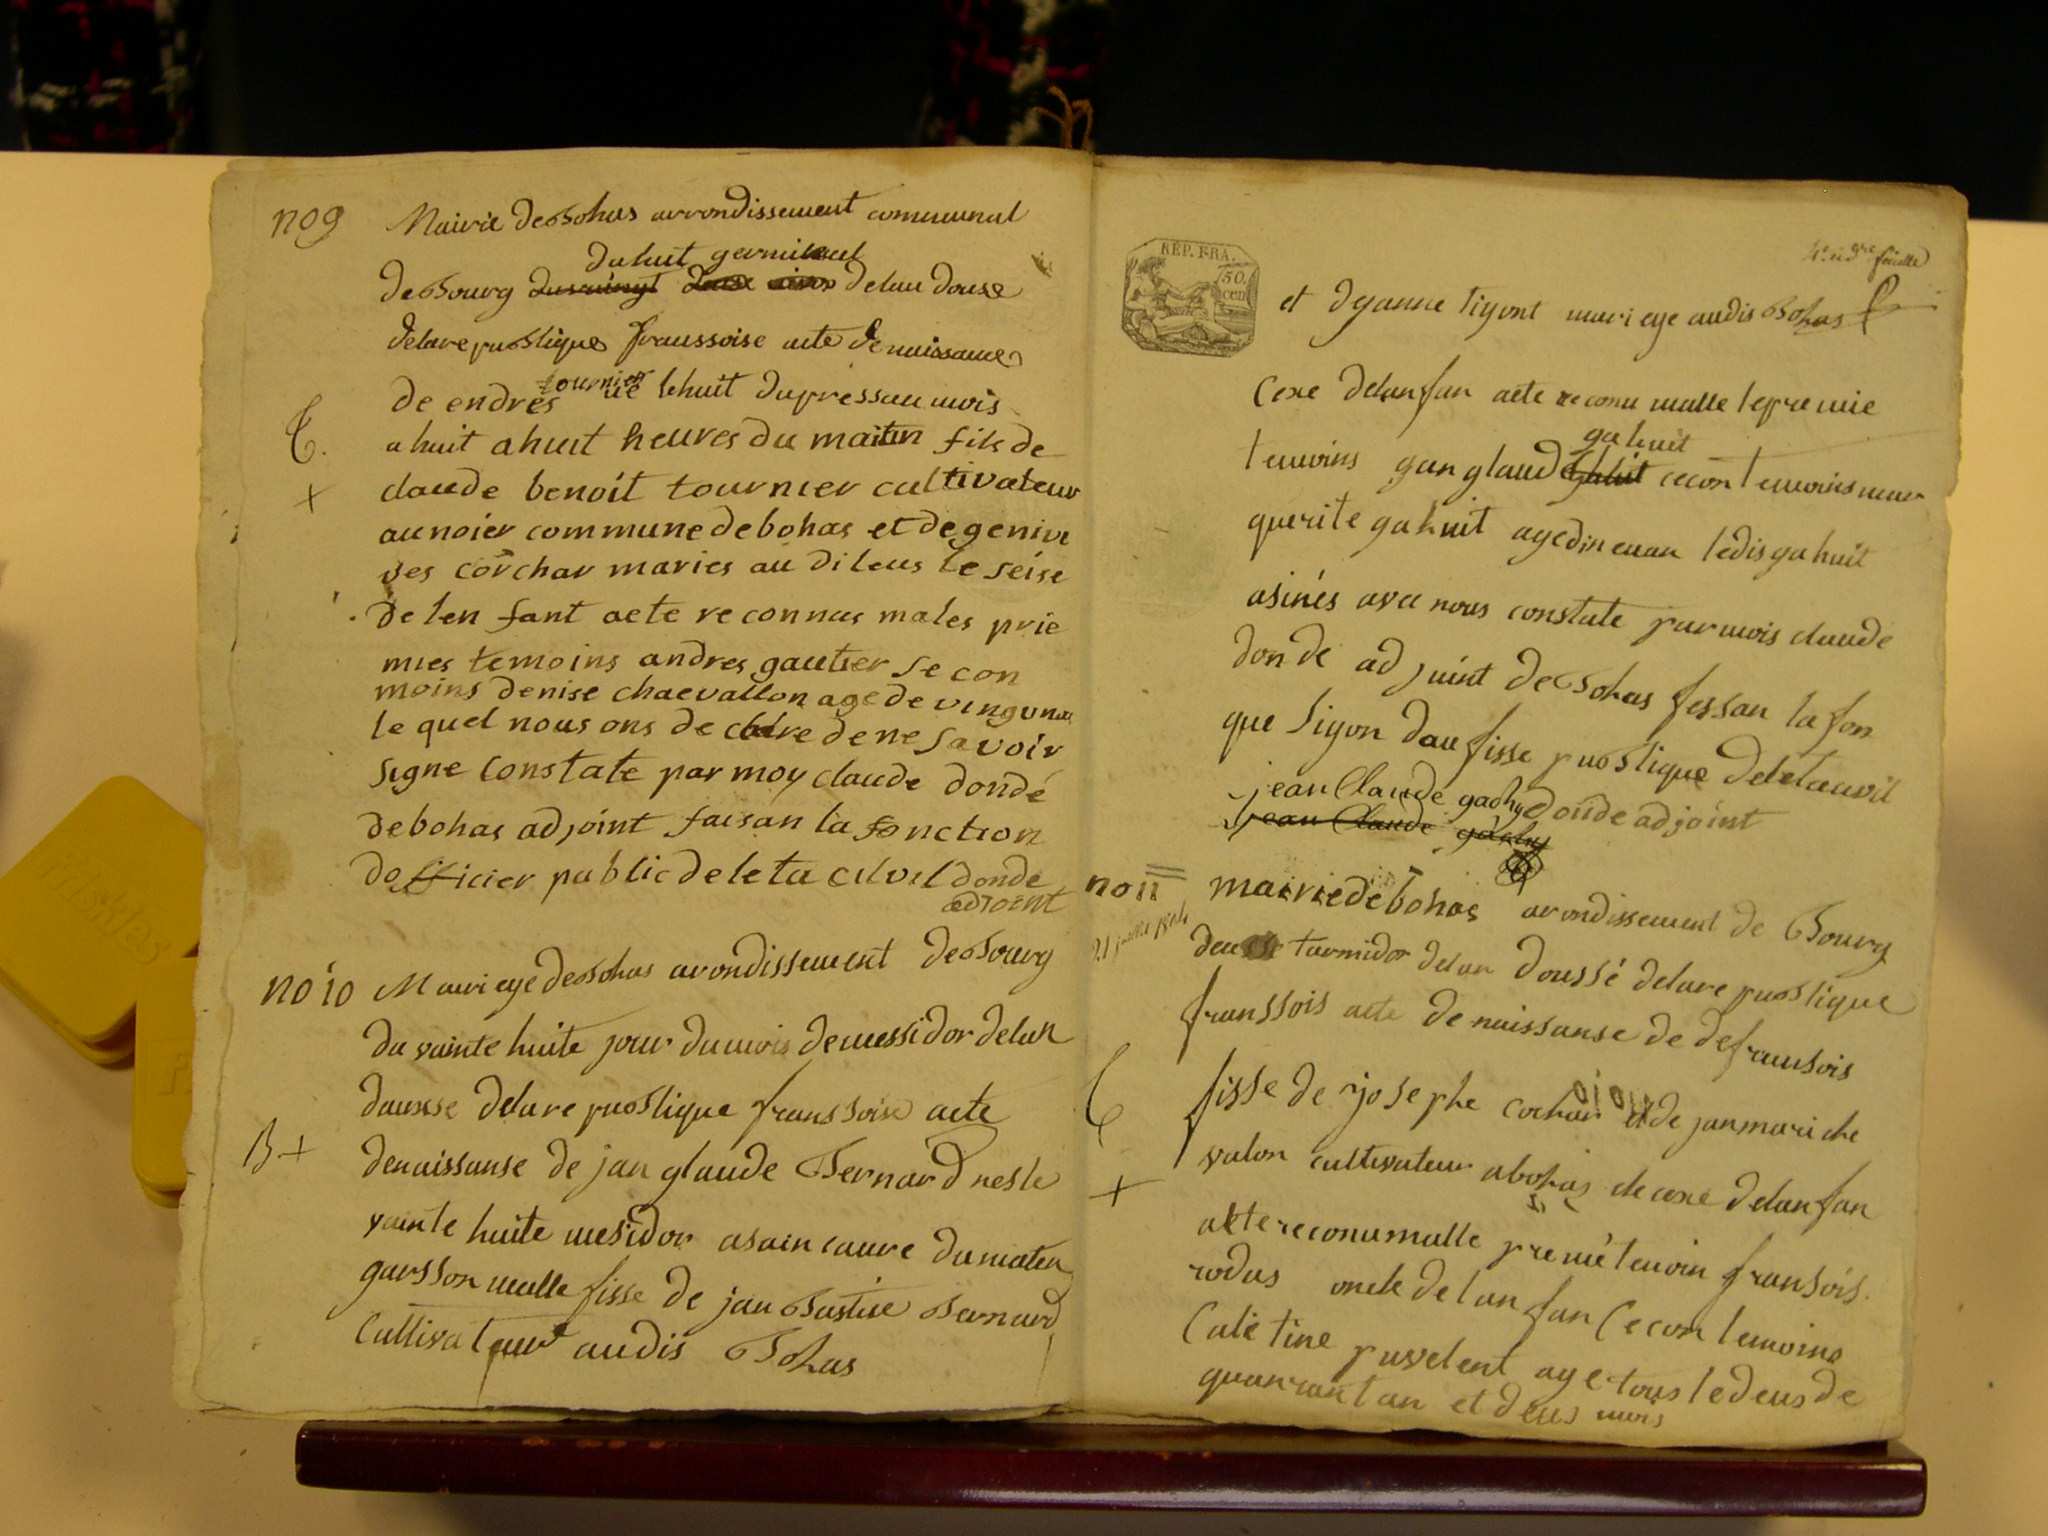 no 9
Mairie de Bohas arrondissement communal
du huit germinal
de Bourg delan douse
delarepuoblique franssoise acte de naissance
tournier
de endres ne lehuit dupressan mois
a huit a huit heures du maitin fils de
claude benoit tournier cultivateur
au noier commune de bohas et de genive
ves corchar maries au di leus le seise
de len fant acte re connus males prie
mies temoins andres gautier se con
moins denise chaevallon age de vingunan
le quel nous ons de clare de ne savoir
signe constate par moy claude dondé
de bohas adjoint faisan la fonction
dofficier public de leta civel donde
adjoint
no 10
Mauvieye de Bohas arondissement de Bourg
du vainte huite jour du mois demessidor delan
dousse delare puoblique franssoise acte
B+
denaissanse de jan glaude Bernard nesle
vainte huite mesidor asain caure du maten
garsson malle fisse de jan Bastise Bernard
Cultivateur audis Bohas
REP. FRA.
50
cen
feuille
et dyanne Tiyont mari eye audis Bohas
Cexe delanfan acte reconu malle lepremie
gahuit
temoins gan glaude gahuit cecon temoins mar
querite gahuit age din euan ledis gahuit
asinés avec nous constate parmois claude
donde adjuint de Bohas fessan la fon
que siyon dau fisse puoblique deletauvil
jean Claude gachy donde adjoint
jean Claude gachy
no 11
mairie de bohas arondissement de Bourg
21 juillet 1804
deusse tarmidor delan doussé delare puoblique
franssois acte de naissanse de defransois
fisse de josephe cochar et de janmari che
valon cultivateur abohas de cexe delanfan
akte reconumalle premié temoin fransois
rodus oncle delanfan Cecon temoins
Caletine puvelent age tous ledeus de
quarrantan et deus mois